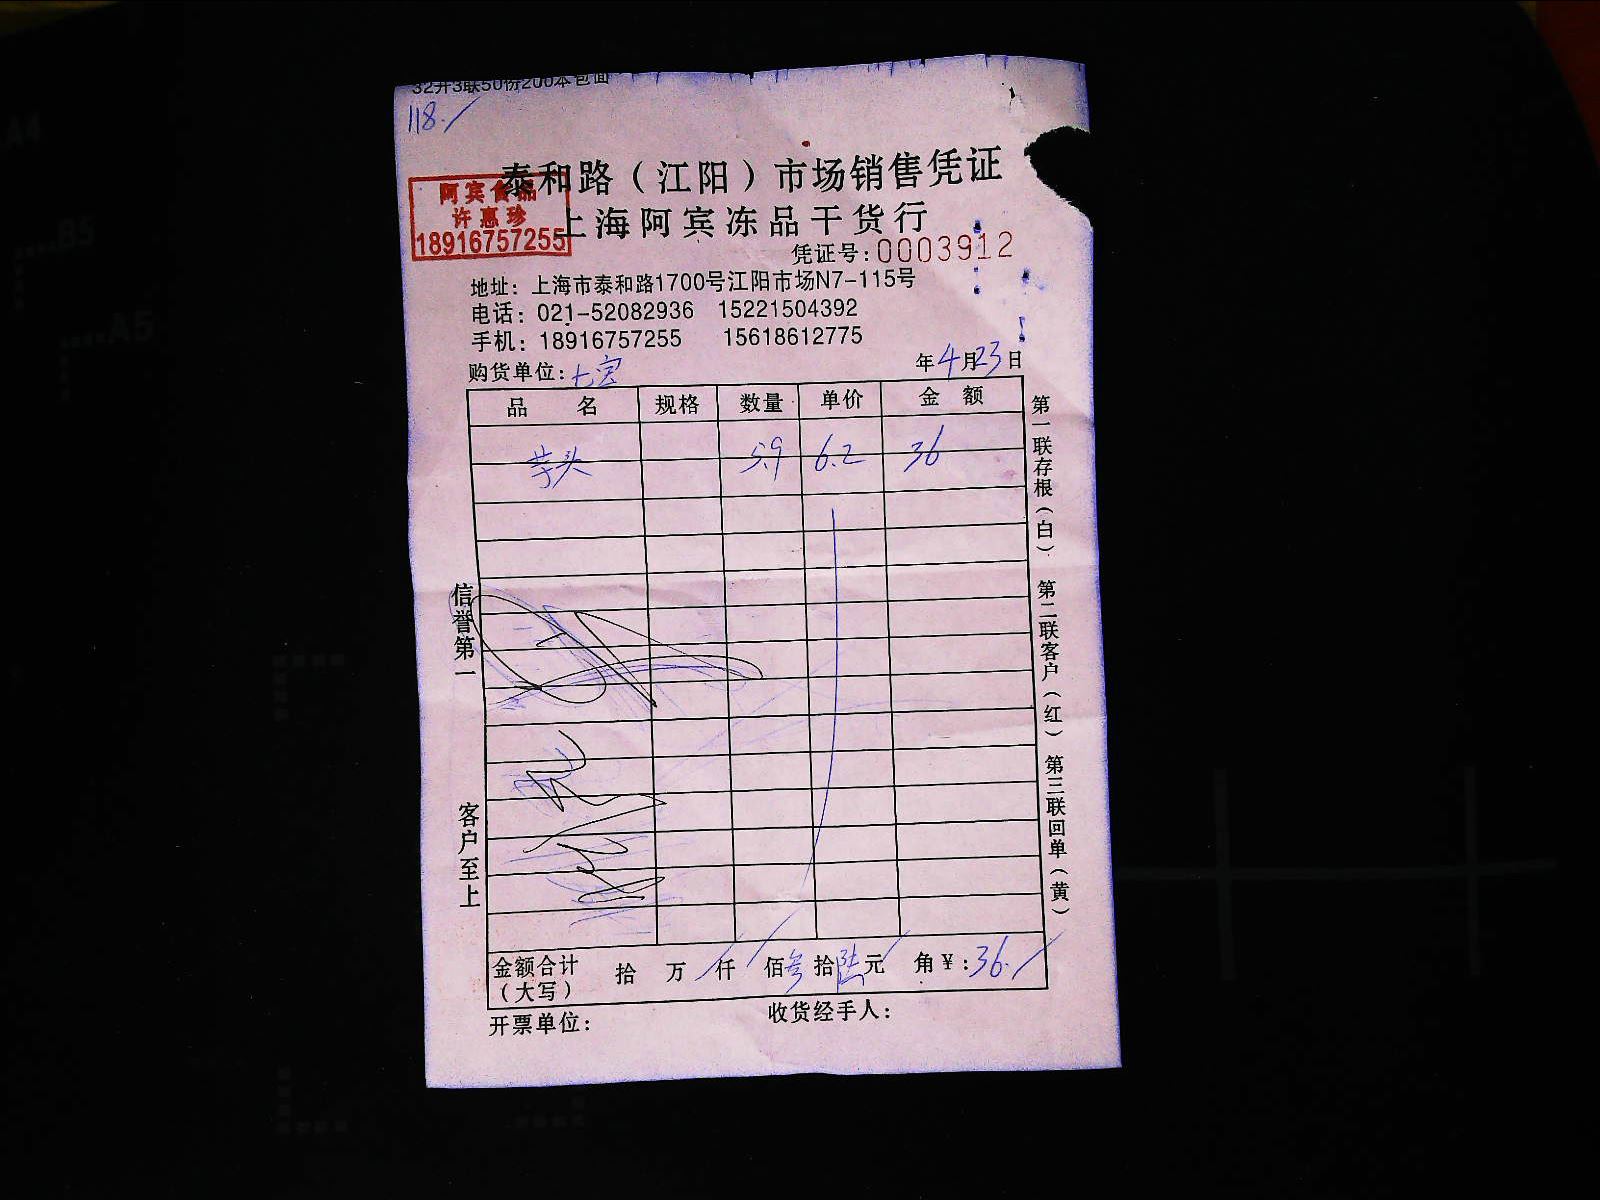 32开3联50份200本包面
118./
泰和路（江阳）市场销售凭证
阿宾食品
许惠珍
18916757255
上海阿宾冻品干货行
凭证号：0003912
地址：上海市泰和路1700号江阳市场N7-115号
电话：021-52082936 15221504392
手机：18916757255 15618612775
购货单位：七宝
年4月23日
品 名 规格 数量 单价 金 额
芋头 5.9 6.2 36
信誉第一
客户至上
第一联存根（白） 第二联客户（红） 第三联回单（黄）
金额合计（大写） 拾 万 仟 佰叁拾陆元 角￥:36./
开票单位： 收货经手人：